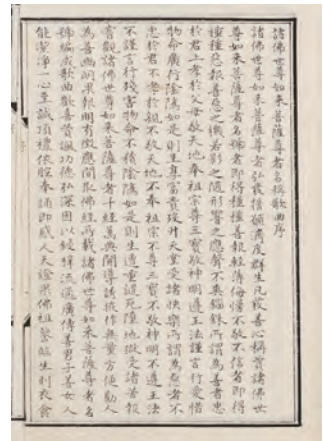 諸佛世尊如來菩薩尊者名稱歌曲序
諸佛世尊如來菩薩尊者弘發信願濟度群生凡發善心稱贊諸佛世
尊如來菩薩尊者名稱者即得種種善報輕薄侮慢不敬不信者即得
種種惡報善惡之機若影之隨形響之應聲不爽錙銖所謂為善者忠
於君上孝於父母敬天地奉祖宗尊三寶敬神明遵王法謹言行愛惜
物命廣行陰隲如是則生享富貴歿升天堂受諸快樂所謂為惡者不
忠於君不孝於親不敬天地不奉祖宗不尊三寶不敬神明不遵王法
不謹言行殘害物命不積陰隲如是則生遭重譴死墮地獄受諸苦報
嘗觀諸佛世尊如來菩薩尊者千經萬典開導誘掖作無量方便勸人
為善幽明果報明有徵應間取佛經所載諸佛世尊如來菩薩尊者名
號編成歌曲歡喜贊嘆功德弘深因以鋟梓流通廣傳善男子善女人
能潔淨一心至誠頂禮依腔奉誦即感人天證果佛祖鑒臨生則衣食